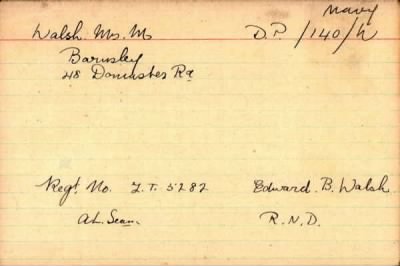 Navy
Walsh Mrs. M D.P /140/W
Barnsley
48 Doncaster Rd
Regt. No. Z.T. 5282 Edward. B. Walsh
A.L. Seam. R.N.D.